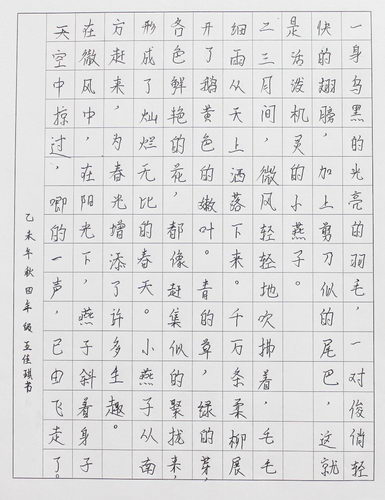 一身乌黑的光亮的羽毛,一对俊俏轻
快的翅膀,加上剪刀似的尾巴,这就
是活泼机灵的小燕子。
二三月间,微风轻轻地吹拂着,毛毛
细雨从天上洒落下来。千万条柔柳展
开了鹅黄色的嫩叶。青的草,绿的芽,
各色鲜艳的花,都像赶集似的聚拢来,
形成了灿烂无比的春天。小燕子从南
方赶来,为春光增添了许多生趣。
在微风中,在阳光下,燕子斜着身子
天空中掠过,唧的一声,已由飞走了。
乙未年秋四年级王佳琪书